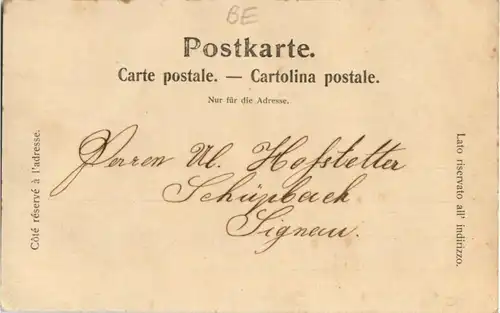 BE
Postkarte.
Carte postale. — Cartolina postale.
Nur für die Adresse.
Côté réservé à l'adresse.
Herren Ul. Hofstetter
Schüpbach
Signau.
Lato riservato all' indirizzo.